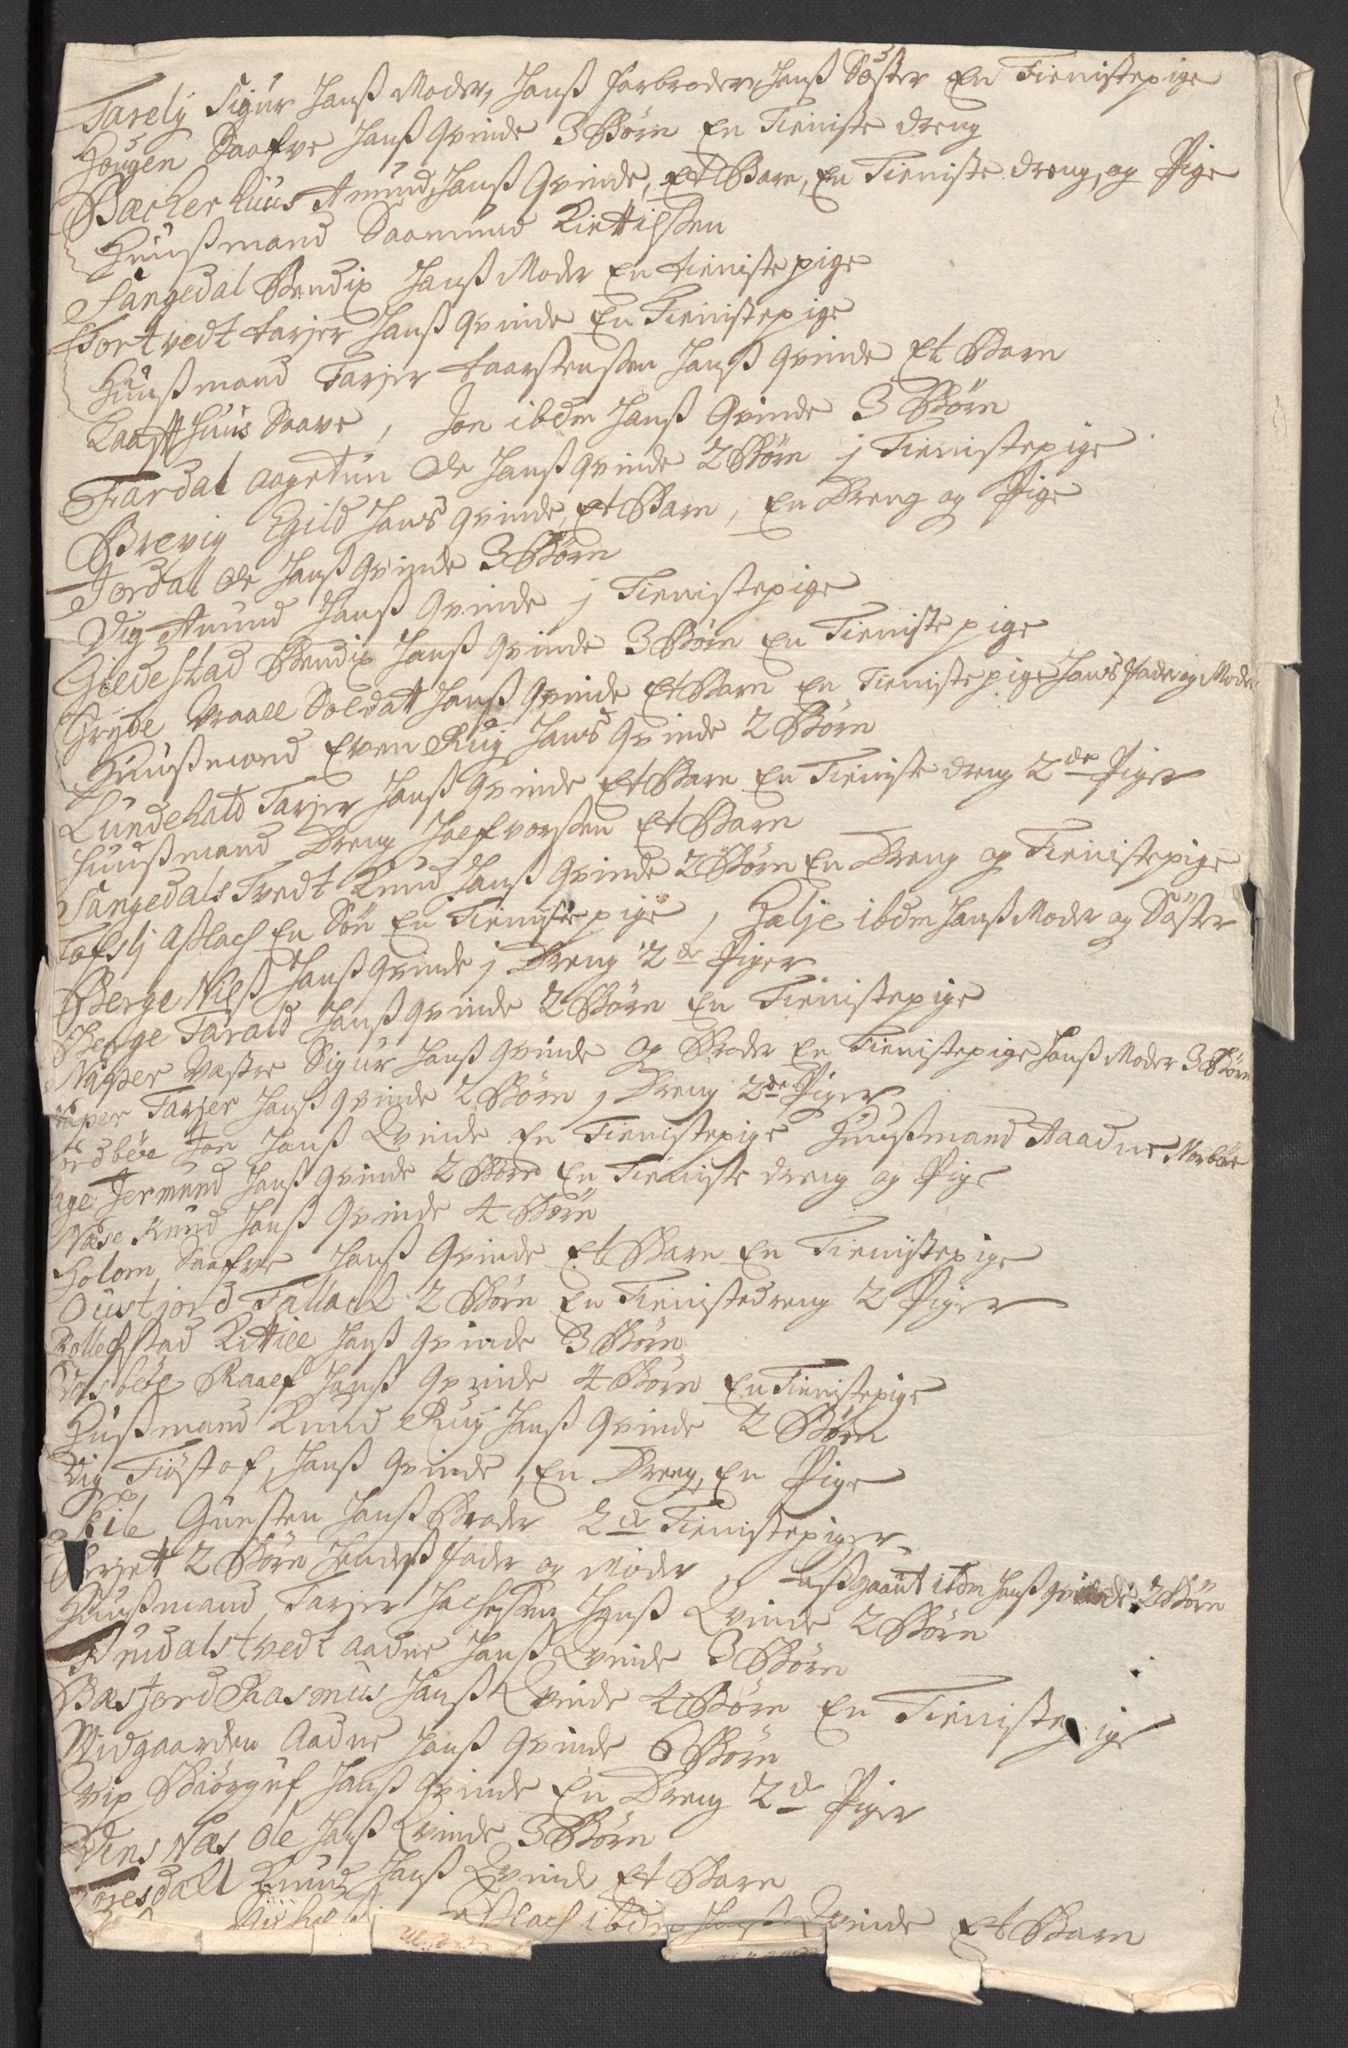 Tarely Sigur Hanß Moder, Hanß farbroder, Hanß Söster En Tienistepige
Hougen Saafve Hanß Qvinde 3 Börn En Tieniste dreng
Backerhuus Amund, Hanß Qvinde, et Barn, En Tieniste dreng, og Pige
Huußmand Saamund Kiettilßen
Sangedal Bendix Hanß Moder En tienistepige
Tortvedt tarjer Hanß Qvinde En Tienistepige
Huußmand Tarjer taarstenßen Hanß Qvinde Et Barn
Kaasthuus Saave, Jon ibdm Hanß Qvinde 3 Börn
Fardal aagetun Ole Hanß Qvinde 2 Börn j Tienistepige
Brevig Egild Hans Qvinde, et Barn, En Dreng og Pige
Jordal Ole Hanß Qvinde 3 Börn
Vig Amund Hanß Qvinde j Tienistepige
Gieldestad Bendix Hanß Qvinde 3 Börn En Tienistepige
Grybe Vraall Soldatt Hanß Qvinde Et Barn En Tienistepige Hans fader og Moder
Huußmand Even Ruy Hans Qvinde 2 Börn
Lundekald Tarjer Hanß Qvinde Et Barn En Tieniste dreng 2de Piger
Huußmand Dreng Halfvorßen Et Barn
Sangedals Tvedt Knud Hanß Qvinde 2 Börn En Dreng og Tienistepige
Tofslj Aslach En Sön En Tienistepige, Halje ibdm Hanß Moder og Söster
Berge Nilß Hanß Qvinde j Dreng 2de Piger
Berge Tarald Hanß Qvinde 2 Börn En Tienistepige
Naper Vastre Sigur Hanß Qvinde og Broder En Tienistepige Hanß Moder 3 Börn
Naper Tarjer Hanß Qvinde 2 Börn j Dreng 2de Piger
Jon Hanß Qvinde En Tienistepige Huußmand Aadne Norböe
Jermund Hanß Qvinde 2 Börn En Tieniste dreng og Pige
Næse Knud Hanß Qvinde 4 Börn
Holom Saafve Hanß Qvinde Et Barn En Tienistepige
Oustjord Tallack 2 Börn En Tienistedreng 2 Piger
Rollefstad Kittill Hanß Qvinde 3 Börn
Vasböe Raalf Hanß Qvinde 4 Börn En Tienistepige
Hußmand Knud Ruy Hanß Qvinde 2 Börn
Vig Tiöstof, Hanß Qvinde, En Dreng, En Pige
Kile Gunsten Hanß Broder 2de Tienistepiger
Berjett 2 Börn Hendeß fader og Moder, Aßgaaut ibdm Hanß Qvinde 2 Börn
Huußmand, Tarjer Hanß Qvinde 2 Börn
Aadne Hanß Qvinde 3 Börn
Basjord Rasmus Hanß Qvinde 4 Börn En Tienistepige
Midgaarden Aadne Hanß Qvinde 6 Börn
Qvip Biörguf Hanß Qvinde En Dreng 2de Piger
Næs Ole Hanß Qvinde 3 Börn
Knud Hanß Qvinde et Barn
Aslach ibdm Hanß Qvinde Et Barn